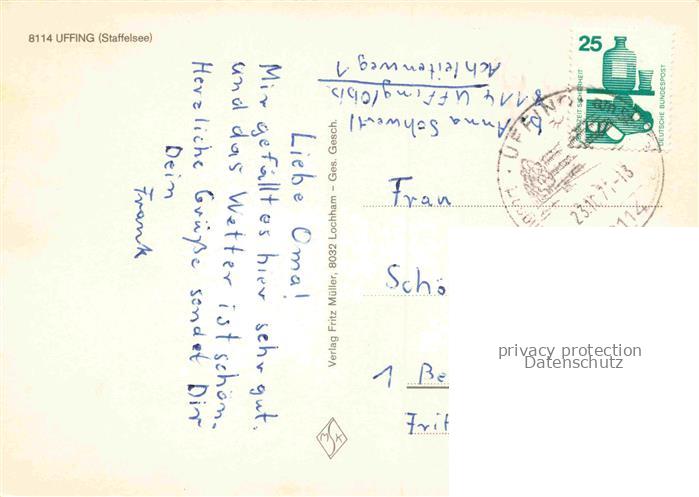 8114 UFFING (Staffelsee)
Liebe Oma!
Mir gefällt es hier sehr gut.
und das Wetter ist schön.
Herzliche Grüße sendet Dir
Dein
Frank
Verlag Fritz Müller, 8032 Lochham – Ges. Gesch.
MSK
Anna Schwertl
8114 Uffing/Obb.
Achleitenweg 1
25
JEDERZEIT SICHERHEIT
DEUTSCHE BUNDESPOST
UFFING
-13
8114
Frau
Schö
1 Be
Frit
privacy protection
Datenschutz